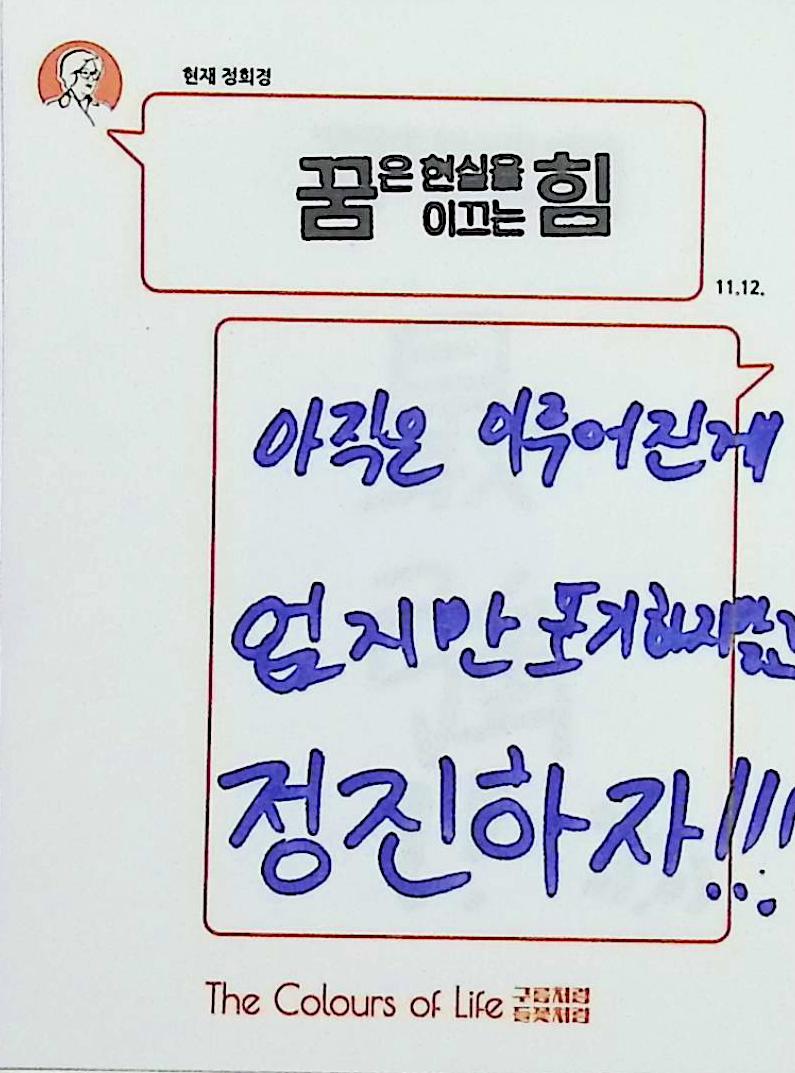 현재 정희경
꿈은 현실을
이끄는 힘
11.12.
아직은 이루어진게
없지만 포기하지말고
정진하자!!!
The Colours of Life 구름처럼
들꽃처럼